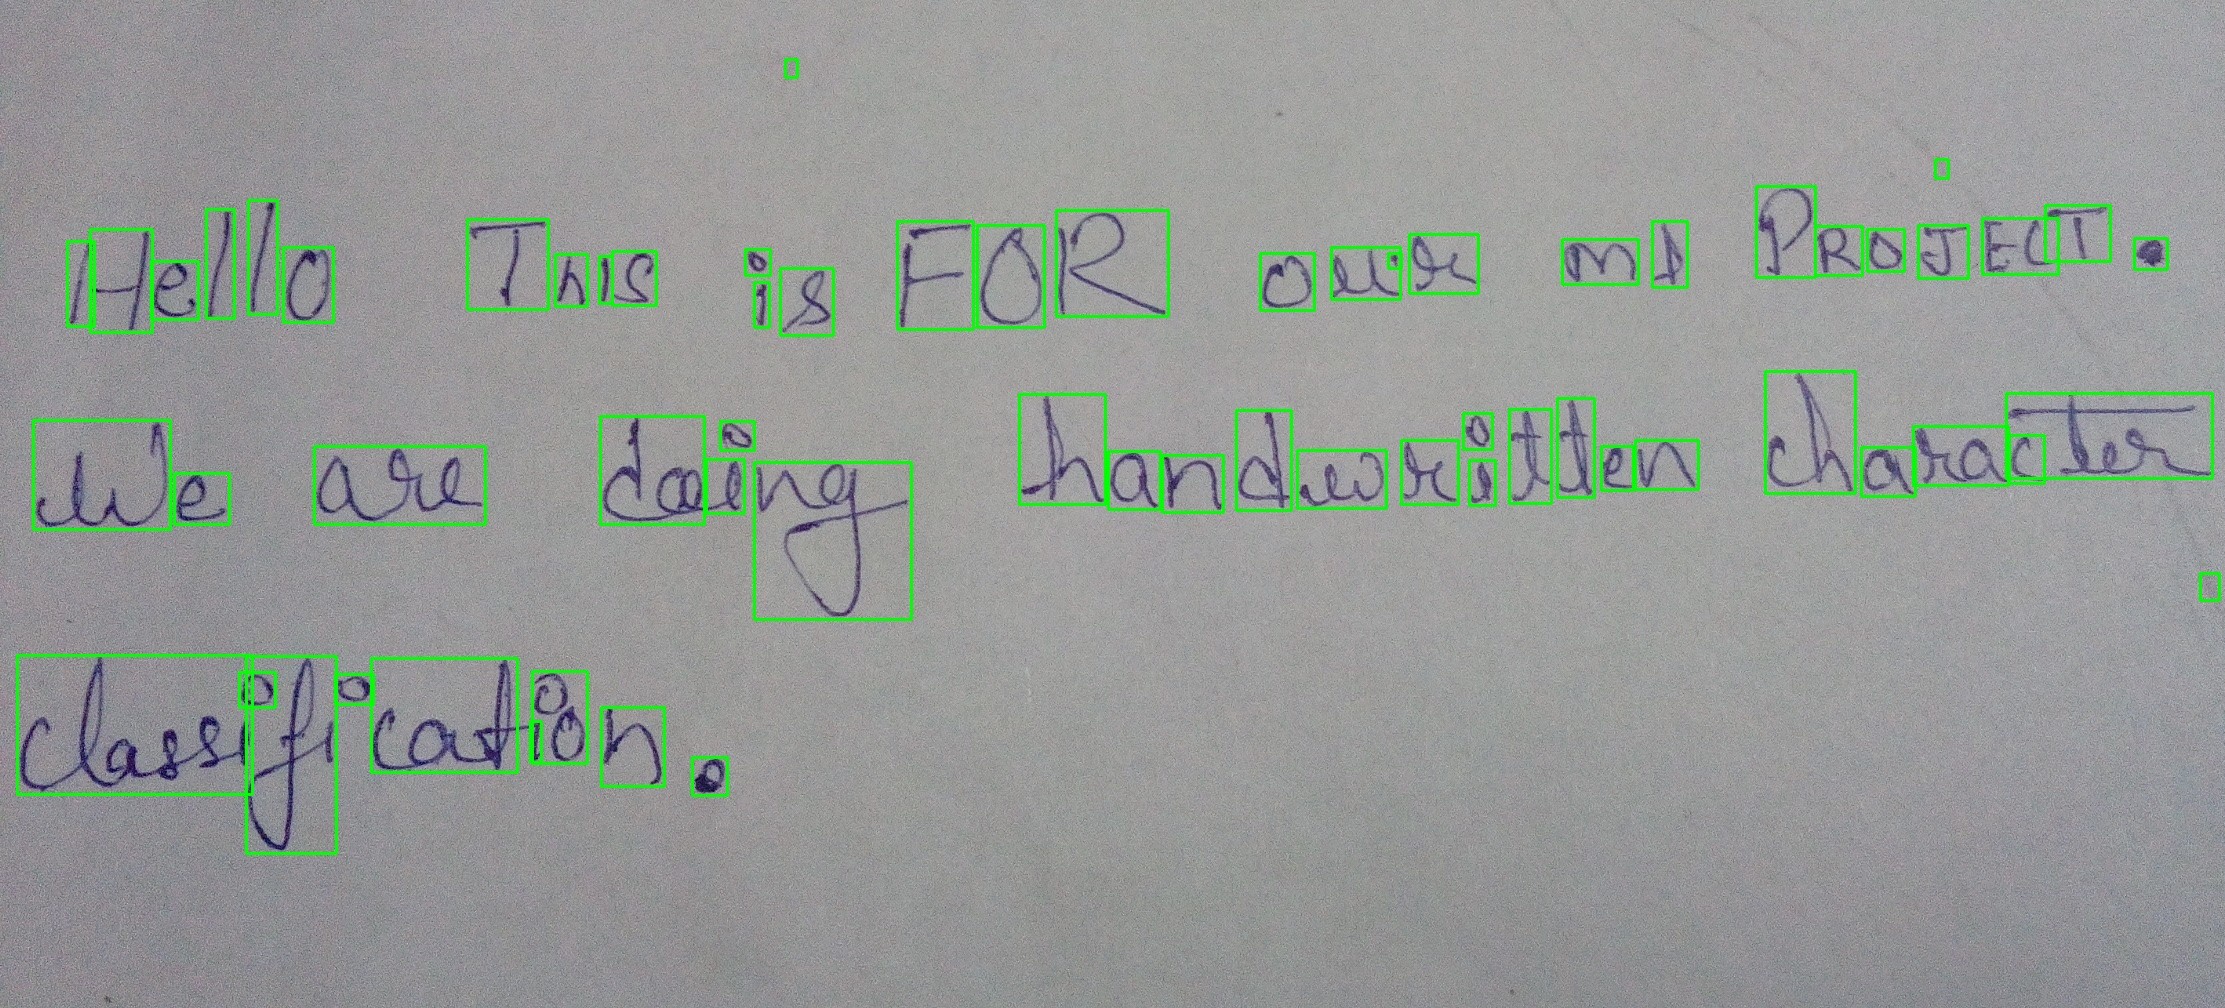 Hello This is FOR our ml PROJECT.
We are doing handwritten character
classification.